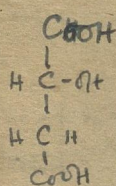 CHOH
H C-OH
H C H
COOH